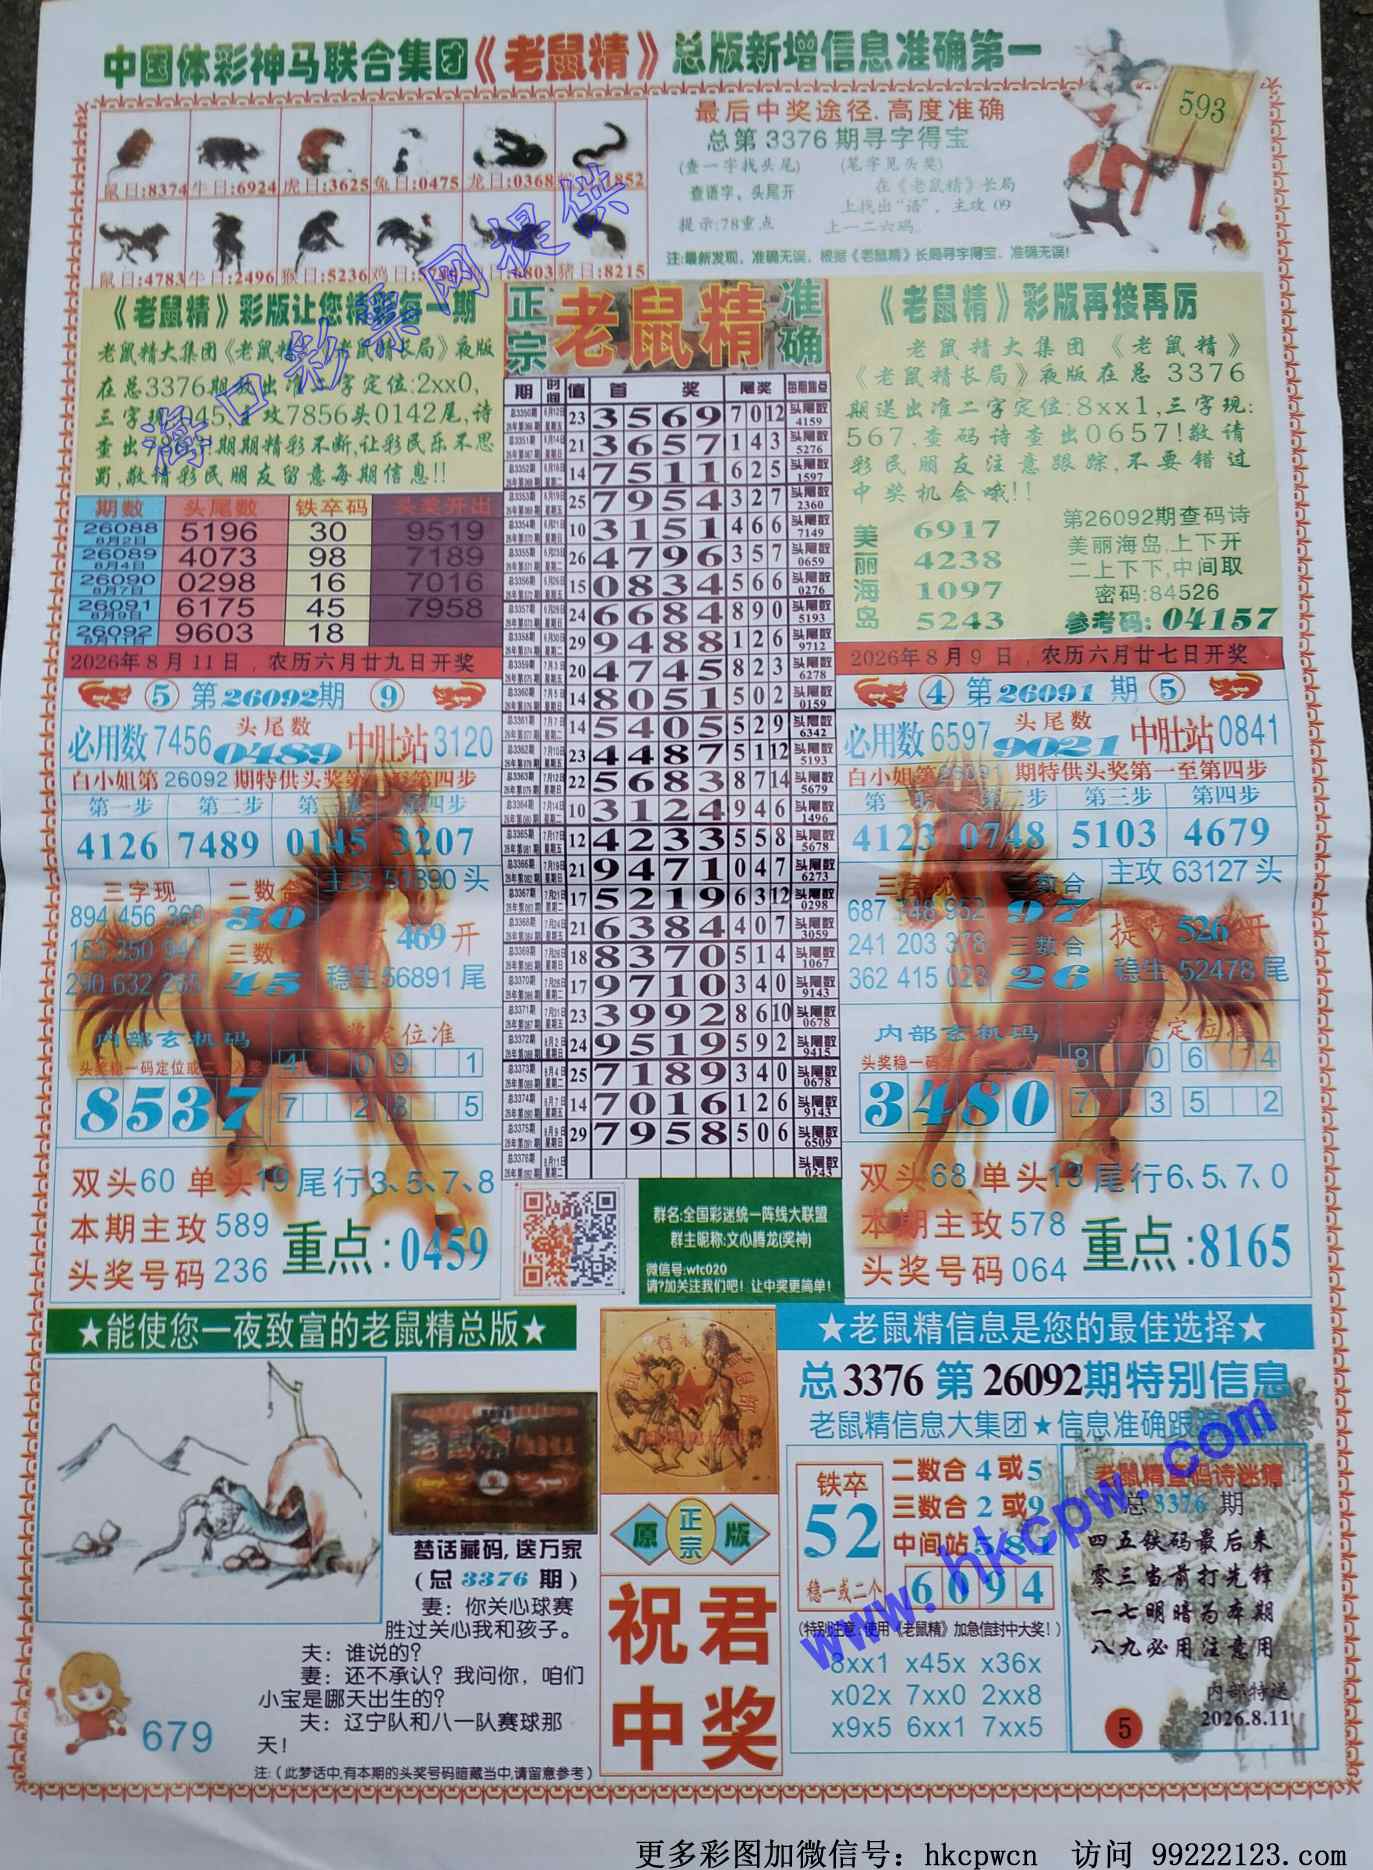 中国体彩神马联合集团《老鼠精》总版新增信息准确第一
593
最后中奖途径.高度准确
总第3376期寻字得宝
(查一字找头尾) (笔字见头奖)
查语字，头尾开
在《老鼠精》长局
上找出"语"，主攻 09
提示:78重点
上一二六码。
注:最新发现，准确无误，根据《老鼠精》长局寻字得宝，准确无误!
鼠日:8374 牛日:6924 虎日:3625 兔日:0475 龙日:0368
鼠日:4783 牛日:2496 猴日:5236 鸡日: 猪日:8215
《老鼠精》彩版让您精彩每一期
在总3376期 二字定位:2xx0,
攻7856头0142尾,诗
期期精彩不断,让彩民乐不思
蜀,敬请彩民朋友留意每期信息!!
期数 头尾数 铁卒码 头奖开出
26088 8月2日 5196 30 9519
26089 8月4日 4073 98 7189
26090 8月7日 0298 16 7016
26091 8月9日 6175 45 7958
26092 8月11日 9603 18
2026年8月11日，农历六月廿九日开奖
⑤ 第26092期 ⑨
必用数 7456 头尾数 0489 中肚站 3120
白小姐第 26092 期特供头奖第一至第四步
第一步 第二步 第三步 第四步
4126 7489 0145 3207
三字现 二数合 主攻 51890 头
894 456 360 30
153 350 941 三数 469 开
290 632 265 45 稳生 56891 尾
内部玄机码
头奖稳一码定位或二 入奖
8537
4 0 9 1
7 2 8 5
双头60 单头19 尾行3、5、7、8
本期主攻 589
头奖号码 236
重点:0459
正宗 老鼠精 准确
期 时间 值 首奖 尾奖 每期焦点
总3350期 6月12日 23 3569 7 0 12 头尾数 4159
总3351期 6月14日 21 3657 1 4 3 头尾数 5276
总3352期 6月16日 14 7511 6 2 5 头尾数 1597
总3353期 6月19日 25 7954 3 2 7 头尾数 2360
总3354期 6月21日 10 3151 4 6 6 头尾数 7149
总3355期 6月23日 26 4796 3 5 7 头尾数 0659
总3356期 6月26日 15 0834 5 6 6 头尾数 0276
总3357期 6月28日 24 6684 8 9 0 头尾数 5193
总3358期 6月30日 29 9488 1 2 6 头尾数 9712
总3359期 7月3日 20 4745 8 2 3 头尾数 6278
总3360期 7月5日 14 8051 5 0 2 头尾数 0159
总3361期 7月7日 14 5405 5 2 9 头尾数 6342
总3362期 7月10日 23 4487 5 11 12 头尾数 5193
总3363期 7月12日 22 5683 8 7 14 头尾数 5679
总3364期 7月14日 10 3124 9 4 6 头尾数 1496
总3365期 7月17日 12 4233 5 5 8 头尾数 5678
总3366期 7月19日 21 9471 0 4 7 头尾数 6273
总3367期 7月21日 17 5219 6 3 12 头尾数 0298
总3368期 7月24日 21 6384 4 0 7 头尾数 3059
总3369期 7月26日 18 8370 5 1 4 头尾数 1067
总3370期 7月28日 17 9710 3 4 0 头尾数 9143
总3371期 7月31日 23 3992 8 6 10 头尾数 0678
总3372期 8月2日 24 9519 5 9 2 头尾数 9415
总3373期 8月4日 25 7189 3 4 0 头尾数 0678
总3374期 8月7日 14 7016 1 2 6 头尾数 9143
总3375期 8月9日 29 7958 5 0 6 头尾数 6509
总3376期 8月11日 头尾数 0243
群名:全国彩迷统一阵线大联盟
群主昵称:文心腾龙(奖神)
微信号:wfc020
请?加关注我们吧！让中奖更简单！
《老鼠精》彩版再接再厉
老鼠精大集团《老鼠精》
《老鼠精长局》夜版在总3376
期送出准二字定位:8xx1,三字现:
567,查码诗查出0657!敬请
彩民朋友注意跟踪,不要错过
中奖机会哦!!
美丽海岛
6917
4238
1097
5243
第26092期查码诗
美丽海岛,上下开
二上下下,中间取
密码:84526
参考码: 04157
2026年8月9日，农历六月廿七日开奖
④ 第26091期 ⑤
必用数 6597 头尾数 9021 中肚站 0841
白小姐第 26091 期特供头奖第一至第四步
第一步 第二步 第三步 第四步
4123 0748 5103 4679
三字现 二数合 主攻 63127 头
687 148 952 97
241 203 378 三数合 526 开
362 415 023 26 稳生 52478 尾
内部玄机码 头奖定位准
3480
8 0 6 4
7 3 5 2
双头68 单头13 尾行6、5、7、0
本期主攻 578
头奖号码 064
重点:8165
★能使您一夜致富的老鼠精总版★
梦话藏码,送万家
(总 3376 期)
妻：你关心球赛
胜过关心我和孩子。
夫：谁说的？
妻：还不承认？我问你，咱们
小宝是哪天出生的？
夫：辽宁队和八一队赛球那
天！
注:（此梦话中,有本期的头奖号码暗藏当中,请留意参考）
679
原 正宗 版
祝君
中奖
★老鼠精信息是您的最佳选择★
总 3376 第 26092期特别信息
老鼠精信息大集团★信息准确跟踪
铁卒
52
稳一或二个
二数合 4 或 5
三数合 2 或 9
中间站
6 0 9 4
(特别注意:使用《老鼠精》加急信封中大奖!)
8xx1 x45x x36x
x02x 7xx0 2xx8
x9x5 6xx1 7xx5
老鼠精查码诗迷猜
总 3376 期
四五铁码最后来
零三当前打先锋
一七明暗为本期
八九必用注意用
内部特送
2026.8.11
5
海口彩票网提供
www.hkcpw.com
更多彩图加微信号：hkcpwcn 访问 99222123.com